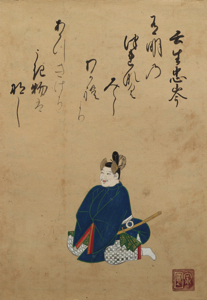 壬生忠岑
有明乃
つれなく
みえし
わかれより
あかつきはかり
うき物は
なし